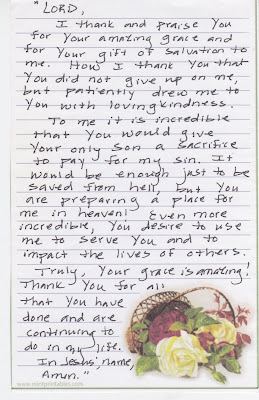 "LORD,
I thank and praise You
for Your amazing grace and
for Your gift of salvation to
me. How I thank You that
You did not give up on me,
but patiently drew me to
You with lovingkindness.
To me it is incredible
that You would give
Your only Son a sacrifice
to pay for my sin. It
would be enough just to be
saved from hell, but You
are preparing a place for
me in heaven! Even more
incredible, You desire to use
me to serve You and to
impact the lives of others.
Truly, Your grace is amazing!
Thank You for all
that You have
done and are
continuing to
do in my life.
In Jesus' name,
Amen."
www.mintprintables.com